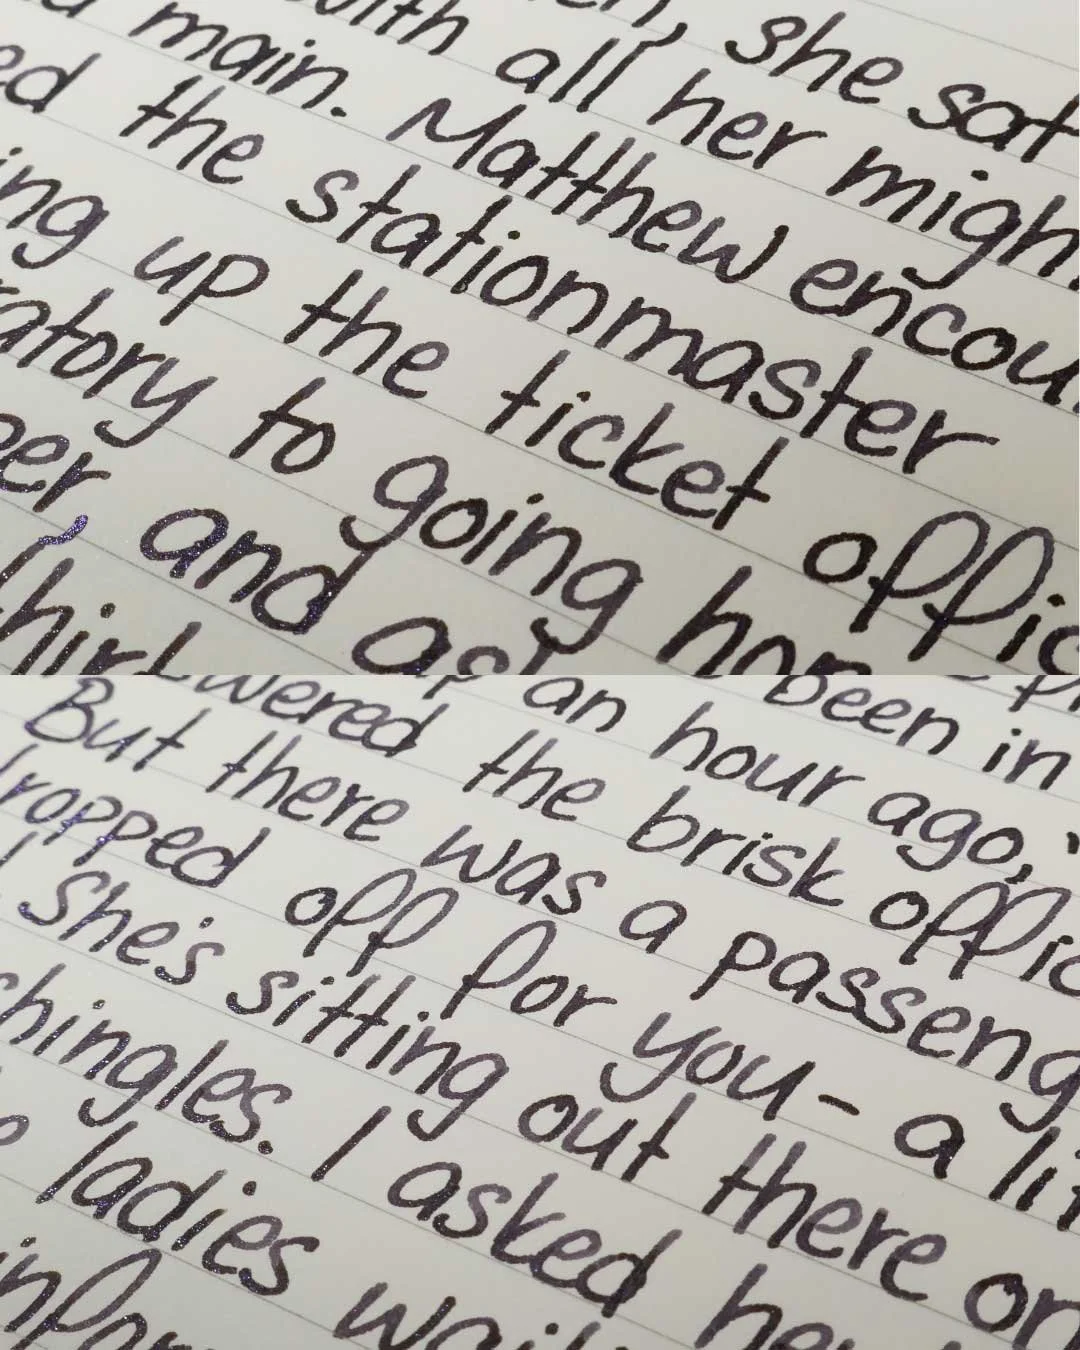 she sat
with all her migh
main. Matthew encou
ed the stationmaster
ing up the ticket offic
ratory to going ho
er, and as
hirt
been in
an hour ago,"
wered the brisk offic
But there was a passeng
ropped off for you- a li
She's sitting out there on
hingles. I asked he
ladies wai
infor